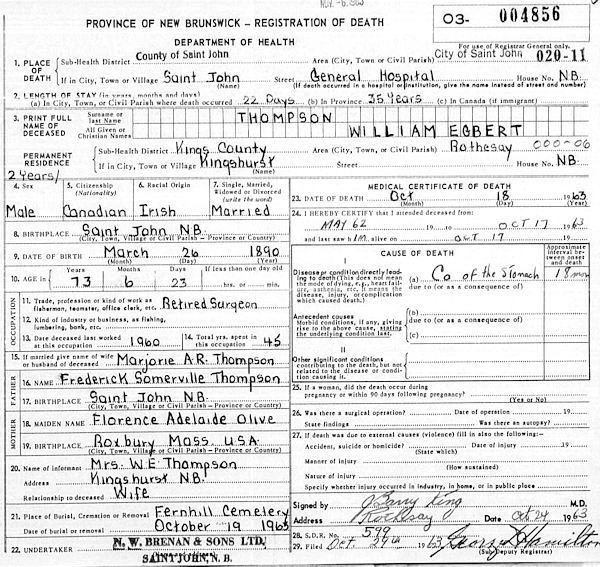 PROVINCE OF NEW BRUNSWICK – REGISTRATION OF DEATH
DEPARTMENT OF HEALTH
O3- 004856
For use of Registrar General only.
1. PLACE OF DEATH
Sub-Health District County of Saint John Area (City, Town or Civil Parish) City of Saint John 020-11
(Name)
If in City, Town or Village Saint John Street General Hospital House No. NB.
(If death occurred in a hospital or institution, give the name instead of street and number)
2. LENGTH OF STAY (in years, months and days)
(a) In City, Town, or Civil Parish where death occurred 22 Days (b) In Province 35 Years (c) In Canada (if immigrant)
3. PRINT FULL NAME OF DECEASED
Surname or last Name THOMPSON
All Given or Christian Names WILLIAM EGBERT
PERMANENT RESIDENCE
Sub-Health District Kings County Area (City, Town, or Civil Parish) Rothesay 000-06
If in City, Town or Village Kingshurst Street House No. NB.
(Name)
2 Years/
4. Sex
Male
5. Citizenship (Nationality)
Canadian
6. Racial Origin
Irish
7. Single, Married, Widowed or Divorced (write the word)
Married
8. BIRTHPLACE Saint John N.B.
(City, Town, Village or Civil Parish – Province or Country)
9. DATE OF BIRTH March 26 1890
(Month) (Day) (Year)
10. AGE in
Years Months Days If less than one day old
73 6 23 hrs. or min.
OCCUPATION
11. Trade, profession or kind of work as fisherman, teamster, office clerk, etc. Retired Surgeon
12. Kind of industry or business, as fishing, lumbering, bank, etc.
13. Date deceased last worked at this occupation 1960
14. Total yrs. spent in this occupation 45
15. If married give name of wife or husband of deceased Marjorie A.R. Thompson
FATHER
16. NAME Frederick Somerville Thompson
17. BIRTHPLACE Saint John N.B.
(City, Town, Village or Civil Parish – Province or Country)
MOTHER
18. MAIDEN NAME Florence Adelaide Olive
19. BIRTHPLACE Roxbury Mass. U.S.A.
(City, Town, Village or Civil Parish – Province or Country)
20. Name of informant Mrs. W.E Thompson
Address Kingshurst N.B.
Relationship to deceased Wife
21. Place of Burial, Cremation or Removal Fernhill Cemetery
Date of burial or removal October 19 1963
22. UNDERTAKER N. W. BRENAN & SONS LTD,
SAINT JOHN, N. B.
MEDICAL CERTIFICATE OF DEATH
23. DATE OF DEATH Oct 18 1963
(Month) (Day) (Year)
24. I HEREBY CERTIFY that I attended deceased from
MAY 62 19 to OCT 17 1963
and last saw him alive on OCT 17 19
CAUSE OF DEATH
Approximate interval between onset and death
I
Disease or condition directly leading to death (This does not mean the mode of dying, e.g., heart failure, asthenia, etc. It means the disease, injury, or complication which caused death.)
(a) Ca of the Stomach 18 mos
due to (or as a consequence of)
Antecedent causes
Morbid conditions, if any, giving rise to the above cause, stating the underlying condition last.
(b)
due to (or as a consequence of)
(c)
II
Other significant conditions contributing to the death, but not related to the disease or condition causing it.
25. If a woman, did the death occur during pregnancy or within 90 days following pregnancy?
(Yes or No)
26. Was there a surgical operation? Date of operation 19
State findings Was there an autopsy?
27. If death was due to external causes (violence) fill in also the following:–
Accident, suicide or homicide? Date of injury 19
(State which)
Manner of injury
(How sustained)
Nature of injury
Specify whether injury occurred in industry, in home, or in public place
Signed by J Barry King M.D.
Address Rothesay Date Oct 24 1963
28. S.D.R. No. 599
29. Filed Oct. 29th 1963 George D Hamilton
(Sub-Deputy Registrar)